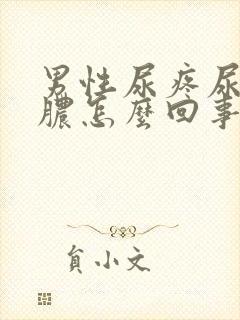 男性尿疼尿
膿怎麼回事
貟小文